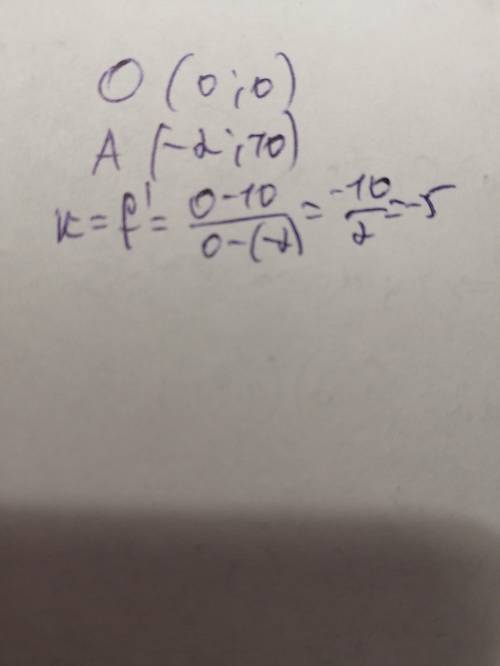 O (0;0)
A (-2;10)
k = f' = 0-10 / 0-(-2) = -10 / 2 = -5